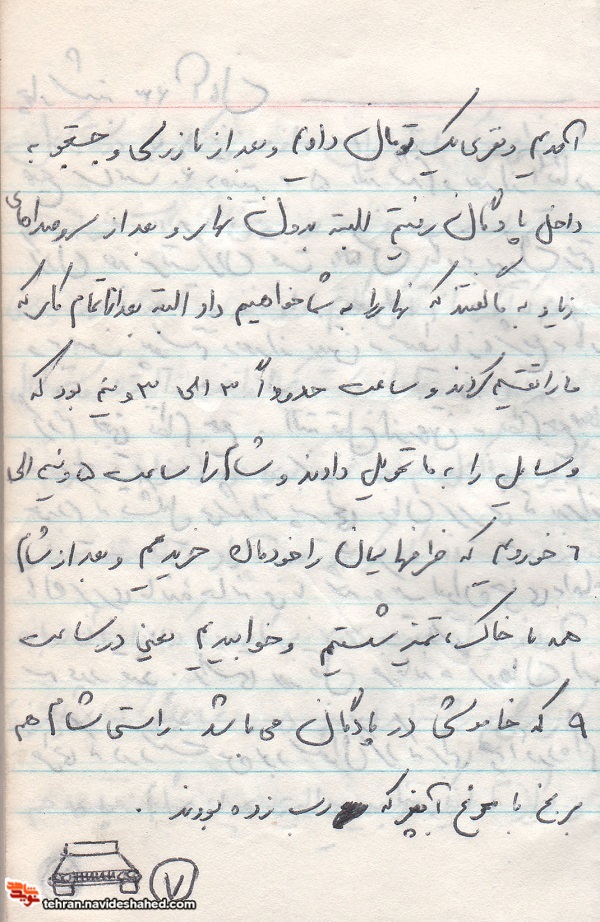 آمدیم و نفری یک تومان دادیم و بعد از بازرسی و جستجو به
داخل پادگان رفتیم البته بدون نهار و بعد از سر و صداهای
زیاد به ما گفتند که نهار را به شما خواهیم داد البته بعد از اتمام کار که
ما را تقسیم کردند و ساعت حدوداً ۳ الی ۳ و نیم بود که
وسایل را به ما تحویل دادند و شام را ساعت ۵ و نیم الی
۶ خوردیم که ظرفهایمان را خودمان خریدیم و بعد از شام
همه با خاک، تمیز شستیم و خوابیدیم یعنی در ساعت
۹ که خاموشی در پادگان می باشد. راستی شام هم
برنج با مرغ آبپز که رب زده بودند.
۷
نوید شاهد
tehran.navideshahed.com